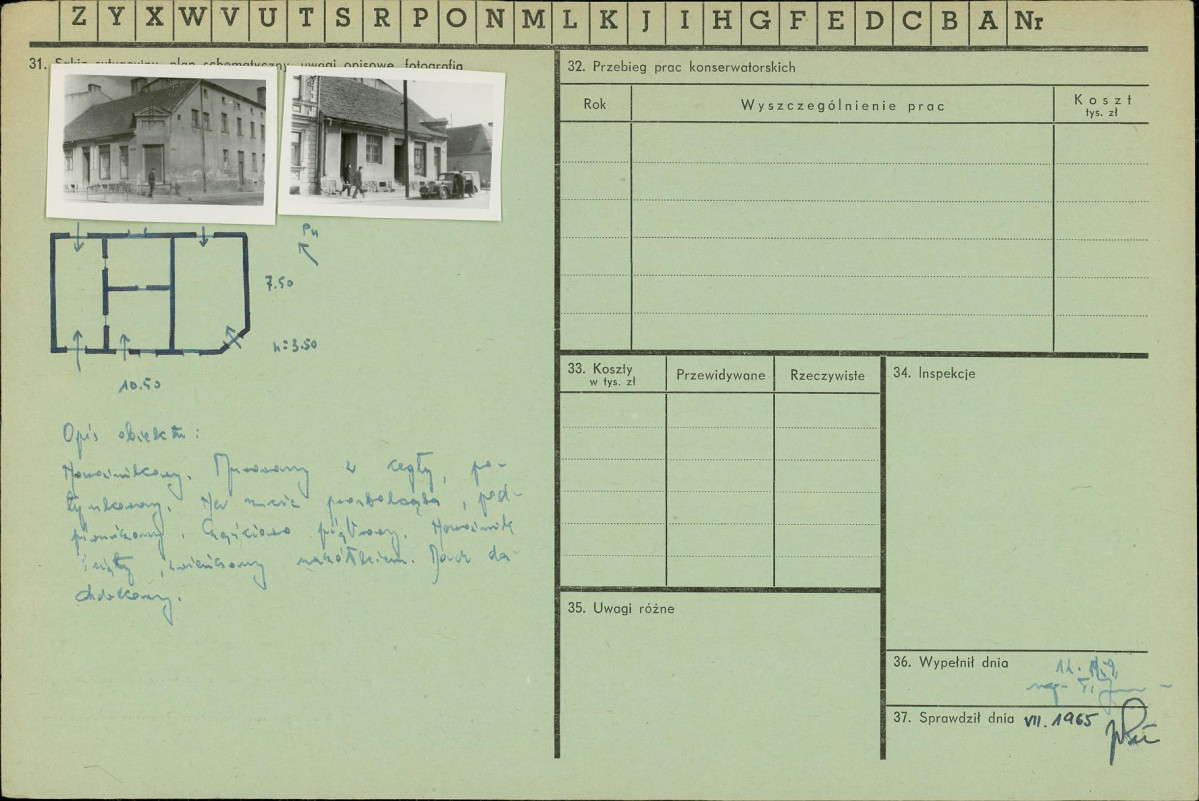 Z Y X W V U T S R P O N M L K J I H G F E D C B A Nr
31. Szkic sytuacyjny, plan schematyczny, uwagi opisowe, fotografia
Pn
7.50
h=3.50
10.50
Opis obiektu:
Narożnikowy. Murowany z cegły, po-
tynkowany. Na rzucie prostokąta, pod-
piwniczony. Częściowo piętrowy. Narożnik
ścięty, zwieńczony naczółkiem. Dach da-
chówkowy.
32. Przebieg prac konserwatorskich
Rok
Wyszczególnienie prac
Koszt
tys. zł
33. Koszty
w tys. zł
Przewidywane
Rzeczywiste
34. Inspekcje
35. Uwagi różne
36. Wypełnił dnia
37. Sprawdził dnia VII. 1965